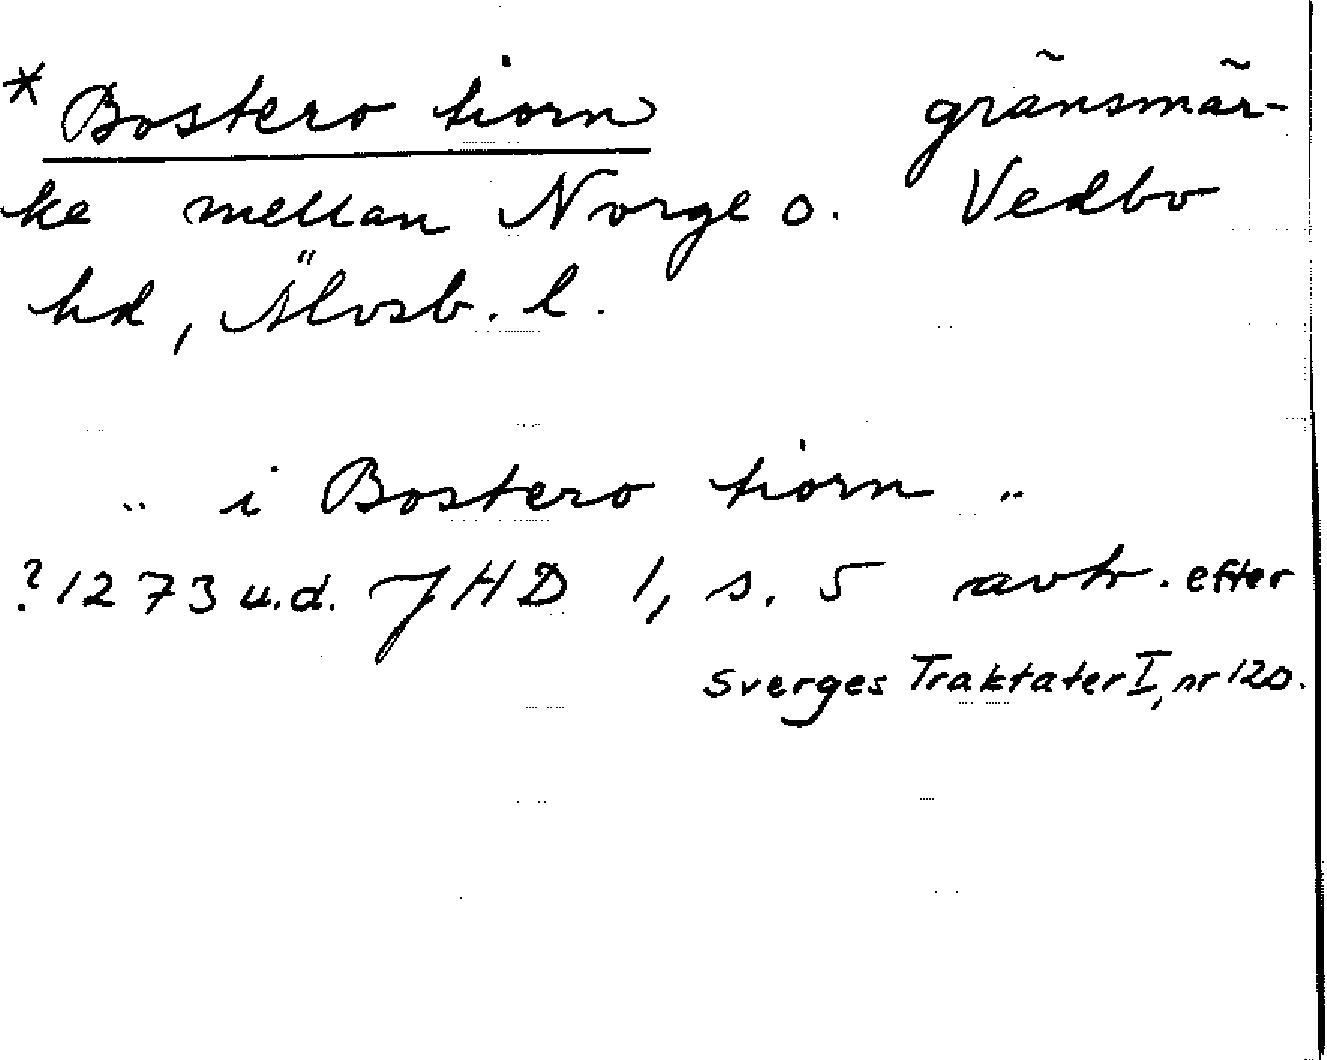 * Bostero tiorn gränsmär-
ke mellan Norge o. Vedbo
hd, Älvsb. l.
" i Bostero tiorn "
? 1273 u.d. JHD 1, s. 5 avtr. efter
Sverges Traktater I, nr 120.